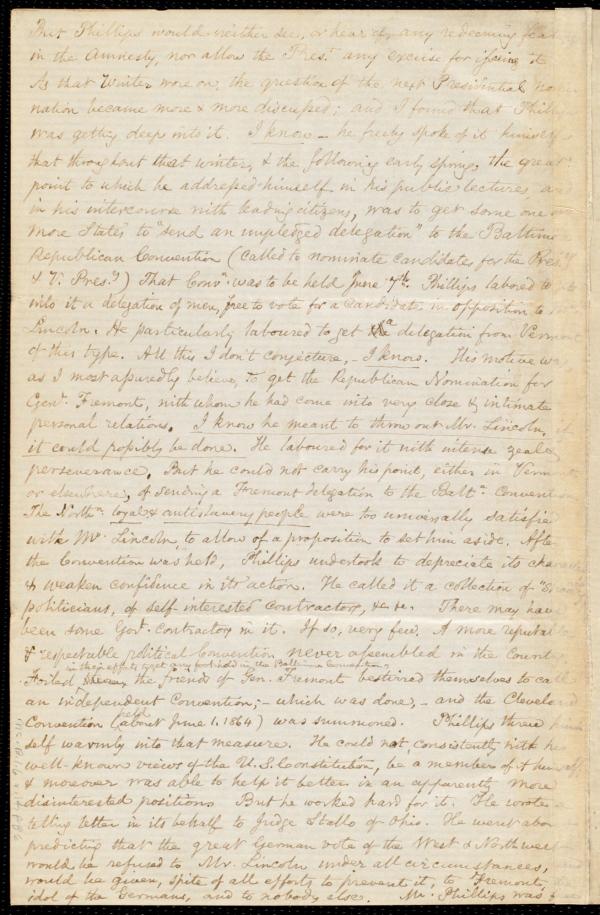 But Phillips would neither see, or hear of, any redeeming
in the Amnesty, nor allow the Pres.t any excuse for issuing it
As that Winter wore on, the question of the next Presidential
nation became more & more discussed; and I found that Phillips
was getting deep into it. I know – he freely spoke of it himself
that throughout that winter, & the following early spring, the great
point to which he addressed himself in his public lectures, and
in his intercourse with leading citizens, was to get some one
more States to "send an unpledged delegation" to the Baltimore
Republican Convention (called to nominate candidates for the Pres.y
& V. Pres.y) That Conv.n was to be held June 7th. Phillips labored to
into it a delegation of men, free to vote for a candidate in opposition to
Lincoln. He particularly laboured to get a delegation from Vermont
of this type. All this I don't conjecture, – I know. His motive was
as I most assuredly believe, to get the Republican Nomination for
Gen.l Fremont, with whom he had come into very close & intimate
personal relations. I know he meant to throw out Mr. Lincoln, if
it could possibly be done. He laboured for it with intense zeal &
perseverance. But he could not carry his point, either in Vermont
or elsewhere, of sending a Fremont delegation to the Balt.o Convention
The North.n loyal & antislavery people were too universally
with Mr. Lincoln, to allow of a proposition to set him aside. After
the Convention was held, Phillips undertook to depreciate its
& weaken confidence in its action. He called it a collection of
politicians, of self-interested contractors, &c. &c. There may have
been some Gov.t contractors in it. If so, very few. A more reputable
& respectable political Convention never assembled in the Country
in their efforts to get any foothold in the Baltimore Convention,
Foiled the friends of Gen. Fremont bestirred themselves to call
an independent Convention; – which was done, – and the Cleveland
Convention (held about June 1. 1864) was summoned. Phillips threw him
self warmly into that measure. He could not, consistently with his
well-known views of the U.S. Constitution, be a member of it himself
& moreover was able to help it better in an apparently more
disinterested position. But he worked hard for it. He wrote
telling letter in its behalf to Judge Stallo of Ohio. He went about
predicting that the great German vote of the West & Northwest
would be refused to Mr. Lincoln under all circumstances,
would be given, spite of all efforts to prevent it, to Fremont,
idol of the Germans, and to nobody else. Mr. Phillips was